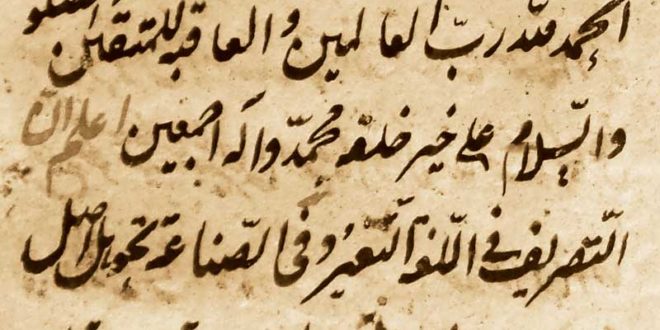 الحمد لله ربّ العالمين والعاقبة للمتقين
والسّلام على خير خلقه محمّد وآله اجمعين اعلم ان
التّصريف في اللّغة التّغيير وفى الصّناعة تحويل الاصل